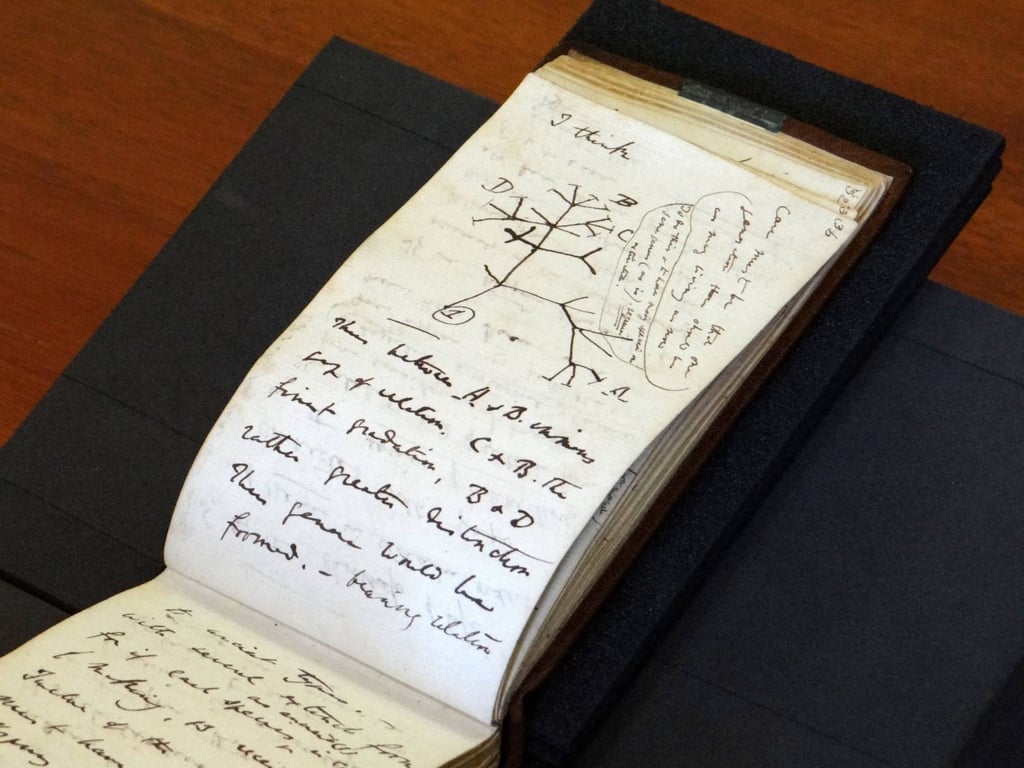 I think
D
B
C
1
A
Case must be that one
generation then should be
as many living as now
To do this & to have many species in
same genus (as is). requires
extinction.
36
Thus between A & B. immense
gap of relation. C & B. the
finest gradation, B & D
rather greater distinction
Thus genera would be
formed. — bearing relation
to ancient types. —
with several extinct forms
for if each species, an ancient
making, 13 recent
Twelve of the
must have